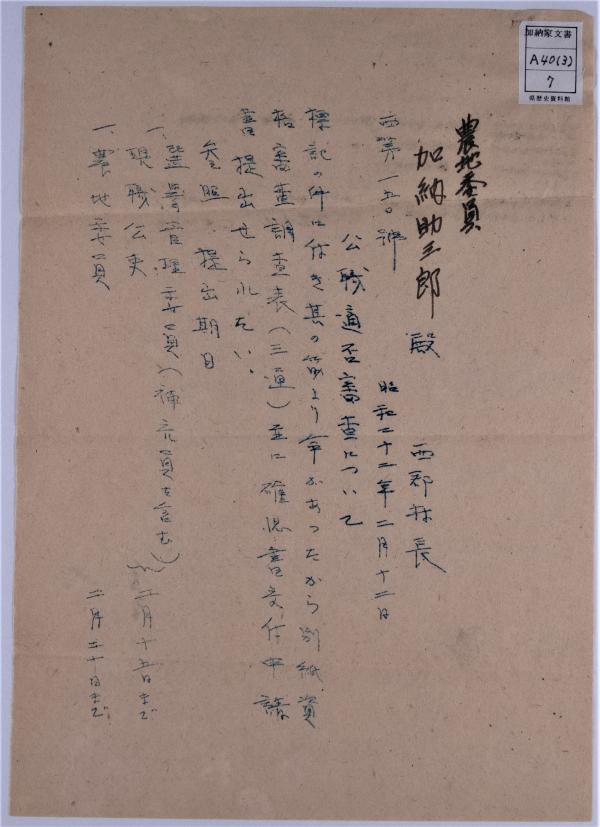 加納家文書
A40(3)
7
県歴史資料館
農地委員
加納助三郎 殿
西第一五〇號
昭和二十二年二月十二日
西郡村長
公職適否審査について
標記の件に付き其の筋より命があつたから別紙資
格審査調査表（三通）並に確認書交付申請
書提出せられたい、
参照 提出期日
一、選挙管理委員（補充員を含む）
現職公吏
二月十五日まで
一、農地委員
二月二十日まで